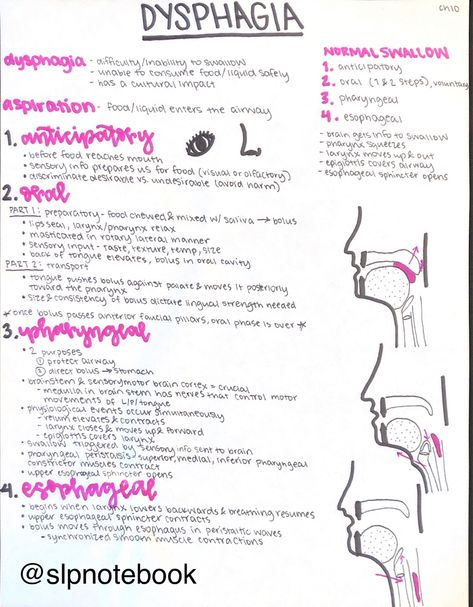 DYSPHAGIA
Ch10
dysphagia - difficulty/inability to swallow
- unable to consume food/liquid safely
- has a cultural impact
aspiration - food/liquid enters the airway
NORMAL SWALLOW
1. anticipatory
2. oral (1 & 2 steps), voluntary
3. pharyngeal
4. esophageal
- brain gets info to swallow
- pharynx squeezes
- larynx moves up & out
- epiglottis covers airway
- esophageal sphincter opens
1. anticipatory
• before food reaches mouth
• sensory info prepares us for food (visual or olfactory)
• discriminate desirable vs. undesirable (avoid harm)
2. oral
PART 1: preparatory - food chewed & mixed w/ saliva → bolus
• lips seal, larynx/pharynx relax
• masticated in rotary lateral manner
• sensory input - taste, texture, temp, size
• back of tongue elevates, bolus in oral cavity
PART 2: transport
• tongue pushes bolus against palate & moves it posteriorly
toward the pharynx
• size & consistency of bolus dictate lingual strength needed
* once bolus passes anterior faucial pillars, oral phase is over *
3. pharyngeal
• 2 purposes
① protect airway
② direct bolus → stomach
• brainstem & sensorymotor brain cortex = crucial
- medulla in brain stem has nerves that control motor
movements of L/P/tongue
• physiological events occur simultaneously
- velum elevates & contracts
- larynx closes & moves up & forward
- epiglottis covers larynx
• swallow triggered by sensory info sent to brain
• pharyngeal peristalsis - superior, medial, inferior pharyngeal
constrictor muscles contract
• upper esophageal sphincter opens
4. esophageal
• begins when larynx lowers backwards & breathing resumes
• upper esophageal sphincter contracts
• bolus moves through esophagus in peristaltic waves
- synchronized smooth muscle contractions
@slpnotebook